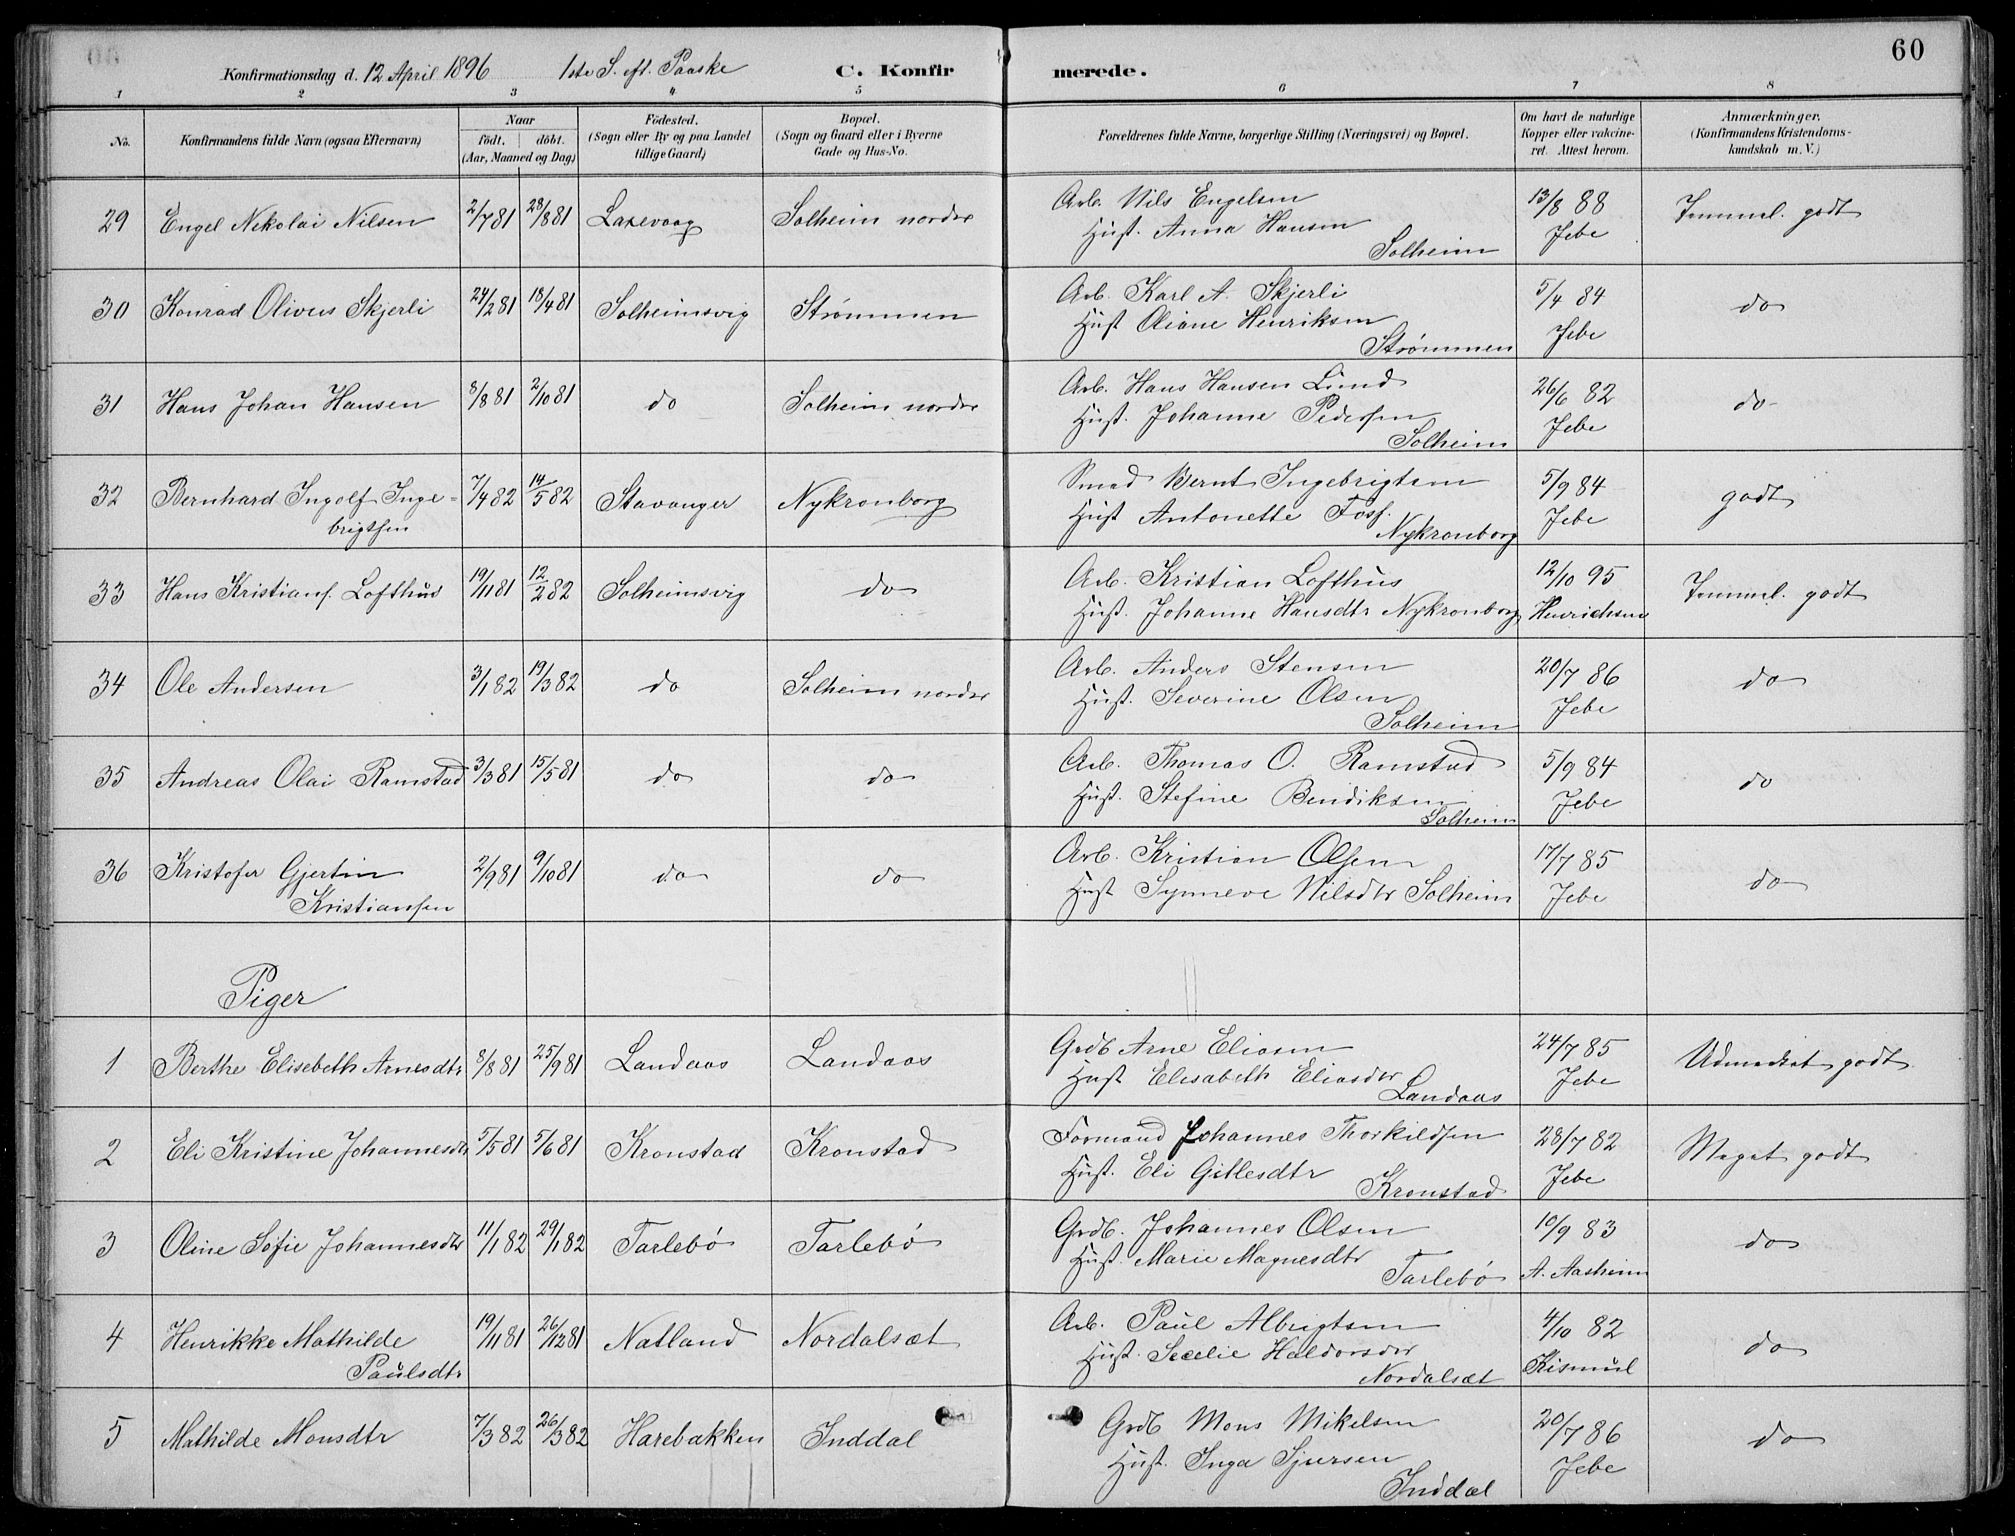 60
Konfirmationsdag d. 12 April 1896 1ste S. eft. Paaske C. Konfirmerede.
1 2 3 4 5 6 7 8
No. Konfirmandens fulde Navn (ogsaa Efternavn) Naar födt. döbt. (Aar, Maaned og Dag) Födested. (Sogn eller By og paa Landet tillige Gaard) Bopæl. (Sogn og Gaard eller i Byerne Gade og Hus-No. Forældrenes fulde Navne, borgerlige Stilling (Næringsvei) og Bopæl. Om havt de naturlige Kopper eller vakcineret. Attest herom. Anmærkninger. (Konfirmandens Kristendomskundskab m. V.)
29 Engel Nikolai Nilsen 2/7 81 28/8 81 Laxevaag Solheim nordre Arb. Nils Engelsen 13/8 88 Temmel. godt
Hust. Anna Hansen Jebe
Solheim
30 Konrad Oliveus Skjerli 24/2 81 18/4 81 Solheimsvig Strømmen Arb. Karl A. Skjerli 5/4 84 do
Hust Oliane Henriksen Jebe
Strømmen
31 Hans Johan Hansen 8/8 81 2/10 81 do Solheim nordre Arb. Hans Hansen Lund 26/6 82 do
Hust. Johanne Pedersen Jebe
Solheim
32 Bernhard Ingolf Inge- 7/4 82 14/5 82 Stavanger Nykronborg Smed Bernt Ingebrigtsen 5/9 84 godt
brigtsen Hust Antonette Foss. Jebe
Nykronborg
33 Hans Kristians. Lofthus 19/11 81 12/2 82 Solheimsvig do Arb. Kristian Lofthus 12/10 95 Temmel. godt
Hust. Johanne Hansdtr Nykronborg Henrichsen
34 Ole Andersen 3/1 82 19/3 82 do Solheim nordre Arb. Anders Stensen 20/7 86 do
Hust. Severine Olsen Jebe
Solheim
35 Andreas Olai Ramstad 3/3 81 15/5 81 do do Arb. Thomas O. Ramstad 5/9 84 do
Hust. Stefine Bendiksen Jebe
Solheim
36 Kristofer Gjertin 2/9 81 9/10 81 do do Arb. Kristian Olsen 17/7 85 do
Kristiansen Hust Synneve Nilsdtr Solheim Jebe
Piger
1 Berthe Elisebeth Arnesdtr 8/8 81 25/9 81 Landaas Landaas Grdb Arne Eliasen 24/7 85 Udmærket godt
Hust Elisabeth Eliasdtr Jebe
Landaas
2 Eli Kristine Johannesdtr 5/5 81 5/6 81 Kronstad Kronstad Formand Johannes Thorkildsen 28/7 82 Meget godt
Hust. Eli Gitlesdtr Jebe
Kronstad
3 Oline Sofie Johannesdtr 11/1 82 29/1 82 Tarlebø Tarlebø Grdb. Johannes Olsen 10/9 83 do
Hust. Marie Magnesdtr
Tarlebø A. Aasheim
4 Henrikke Mathilde 19/11 81 26/12 81 Natland Nordalsæt Arb. Paul Albrigtsen 4/10 82 do
Paulsdtr Hust. Secelie Haldorsdtr Kismul
Nordalsæt
5 Mathilde Monsdtr 7/3 82 26/3 82 Harebakken Inddal Grdb Mons Mikelsen 20/7 86 do
Hust. Inga Sjursen Jebe
Inddal